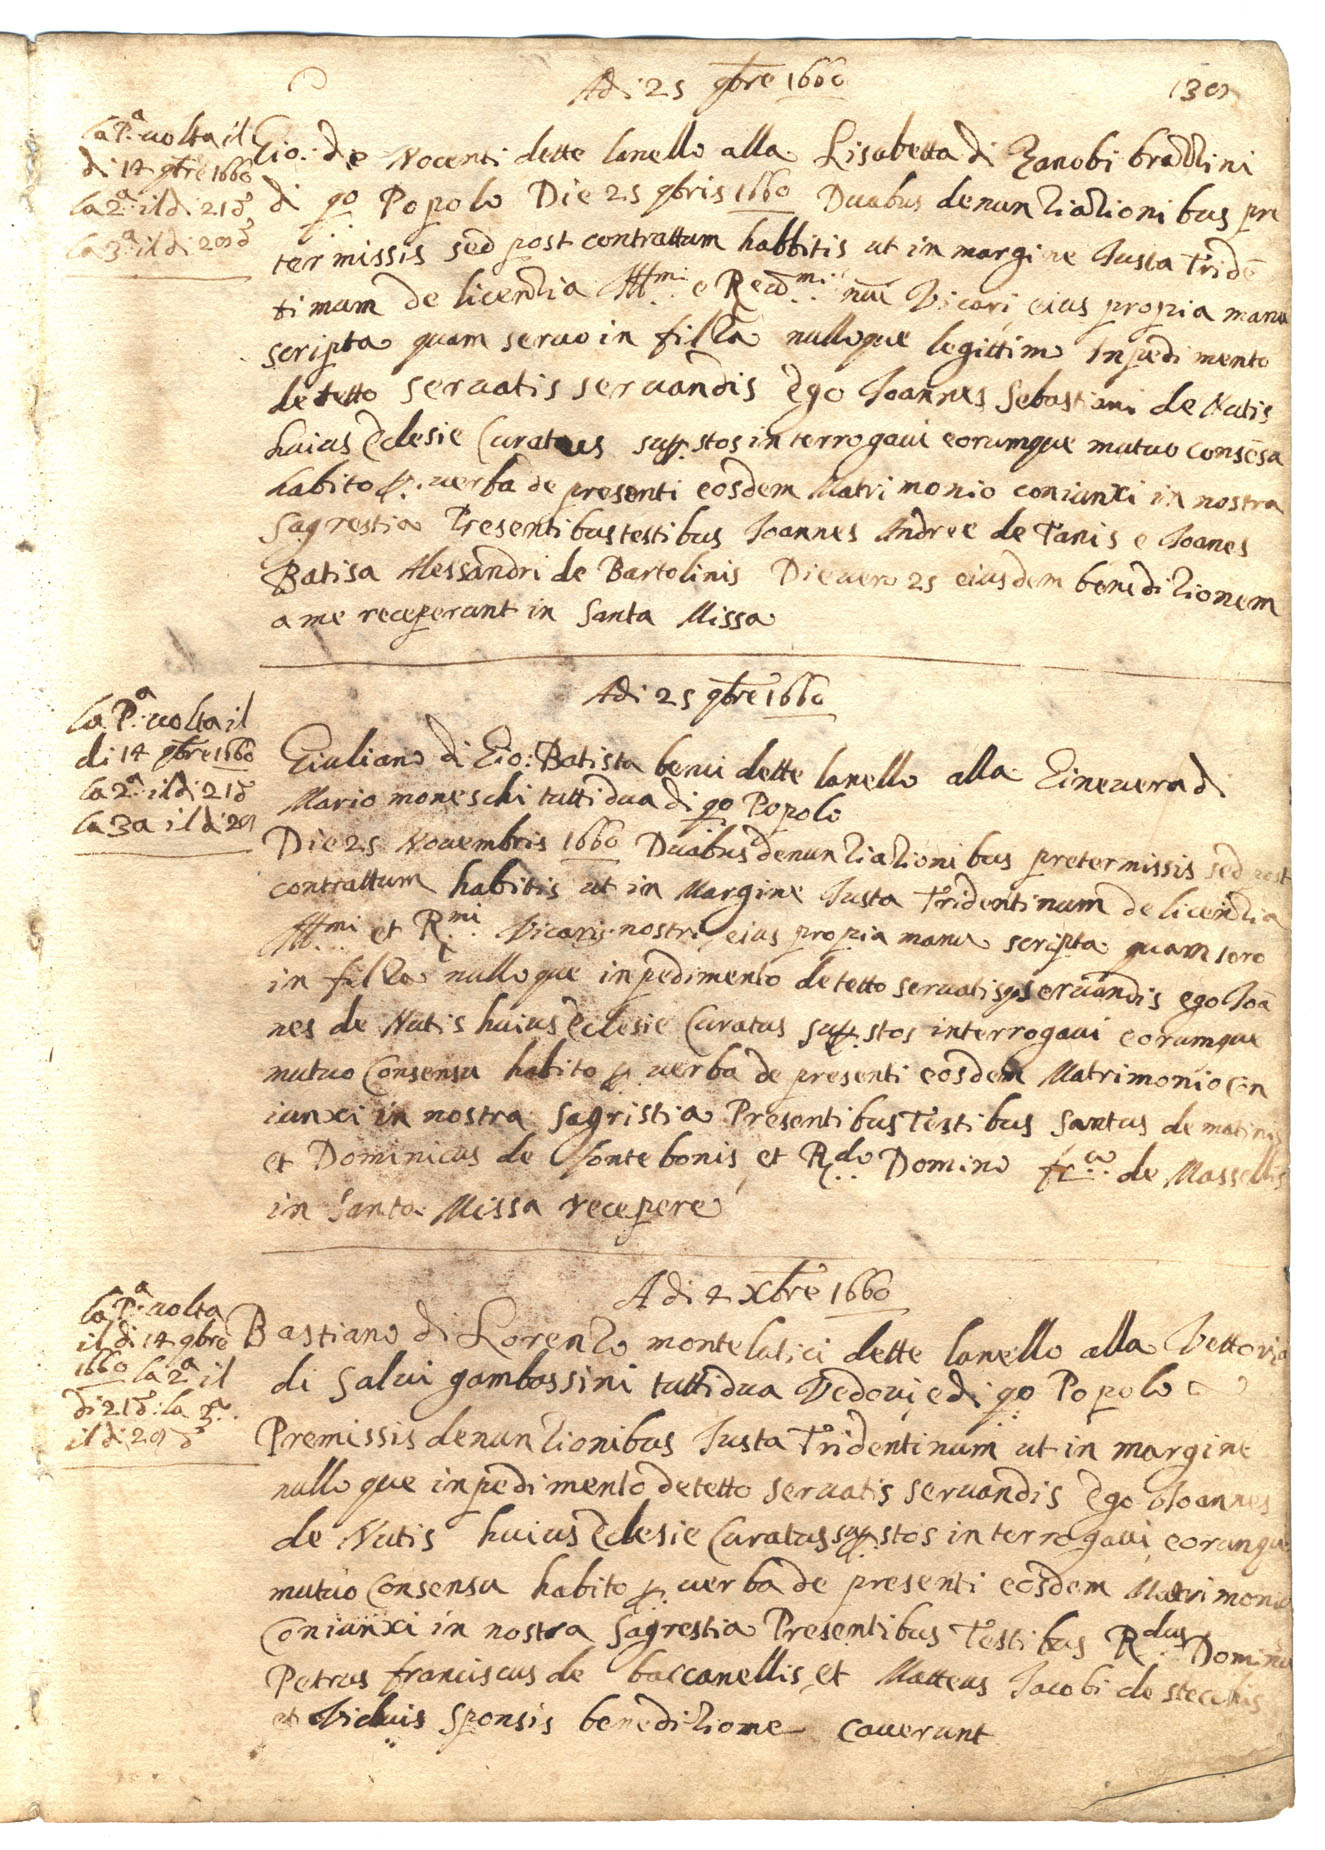 Adi 25 9bre 1660
130
la Pa. uolta il
di 14 9bre 1660
la 2a. il di 21 d
la 3a. il di 28 d
Gio: de Nocenti dette lanello alla Lisabetta di Zanobi
di qo Popolo Die 25 9bris 1660 Duabus denuntiationibus pre
termissis sed post contrattum habbitis ut in margine Iusta Tride
timum de licentia Illmi e Reudmi nri Vicari eius propia manu
scripta quam seruo in filza nulloque legittimo Inpedimento
detetto seruatis seruandis Ego Ioannes Sebastiani de Nutis
huius Eclesie Curatus supstos interrogaui eorumque mutuo consesa
habito p. uerba de presenti eosdem Matrimonio coniunxi in nostra
Sagrestia Presentibus testibus Ioannes Andree de Panis e Ioanes
Batisa Alessandri de Bartolinis Die uero 25 eiusdem beneditionem
a me receperunt in Santa Missa
Adi 25 9bre 1660
la Pa. uolta il
di 14 9bre 1660
la 2a. il di 21 d
la 3a il di 28
Giuliano di Gio: Batista benui dette lanello alla Gineuera di
Mario moneschi tutti dua di qo Popolo
Die 25 Nouembris 1660 Duabus denuntiationibus pretermissis sed post
contrattum habitis ut in Margine Iusta Tridentinum de licentia
Illmi et Rmi Vicaris nostri eius propia manu scripta quam
in filza nulloque inpedimento detetto seruatisqe seruandis ego Ioa
nes de Nutis huius Eclesie Curatus supstos interrogaui eorumque
mutuo Consensu habito p. uerba de presenti eosdem Matrimonio con
iunxi in nostra Sagristia Presentibus Testibus Santus de matinis
et Dominicus de fontebonis et Rdo Domino frco de Massellis
in Santa Missa recepere
A di 4 Xbre 1660
la Pa. uolta
il di 14 9bre
1660 la 2a il
di 21 d: la 3a.
il di 28 d
Bastiano di Lorenzo montelatici dette lanello alla Vettoria
di Salui gambassini tutti dua Vedoui e di qo Popolo
Premissis denuntionibus Iusta Tridentinum ut in margine
nulloque inpedimento detetto seruatis seruandis Ego Ioannes
de Nutis huius Eclesie Curatus supstos interrogaui eorunque
mutuo Consensu habito p. uerba de presenti eosdem Matrimonio
Coniunxi in nostra Sagrestia Presentibus Testibus Rdus Dominus
Petrus franciscus de baccanellis et Matteus Iacobi de steccnis
et Viduis Sponsis beneditione cauerunt